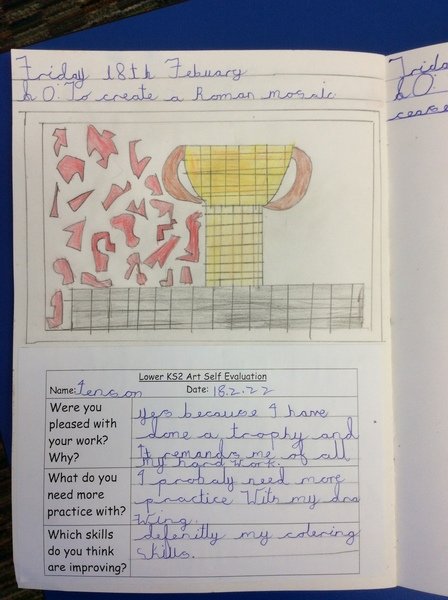 Friday 18th Febuary
LO: To create a Roman mosaic
Frida
LO:
Lower KS2 Art Self Evaluation
Name: Jenson Date: 18.2.22
Were you pleased with your work? Why?
yes because I have
done a trophy and
It remands me of all
my hard work.
What do you need more practice with?
I probaly need more
practice With my dra
wing.
Which skills do you think are improving?
defenitly my colering
skills.